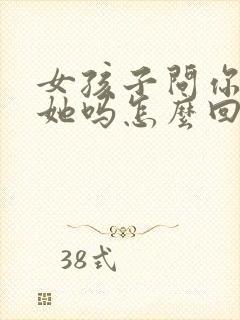 女孩子問你
她吗怎麼回
38式